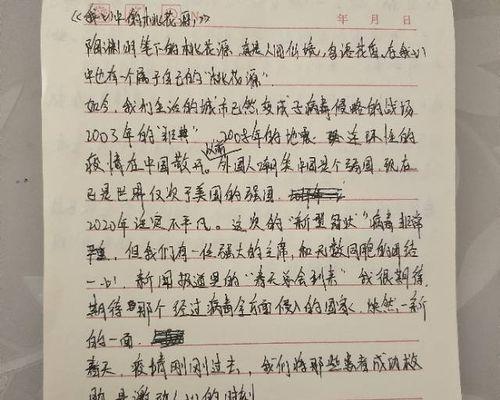 《我心中的桃花源》
年 月 日
陶渊明笔下的桃花源,真是人间仙境,鸟语花香,在我心
中也有一个属于自己的“桃花源”。
如今,我们生活的城市已然变成了病毒侵略的战场
2003年的“非典”,2008年的地震,连环性的
疫情在中国散开。以前外国人嘲笑中国是个弱国,现在
已是世界仅次于美国的强国,
2020年注定不平凡。这次的“新型冠状”病毒非常
严重,但我们有一位强大的主席,和无数同胞的团结
一心!新闻报道里的“春天总会到来”我很期待,
期待那个经过病毒全方面侵入的国家,焕然一新
的一面
春天,疫情刚刚过去,我们将那些患者成功救
助,是激动人心的时刻